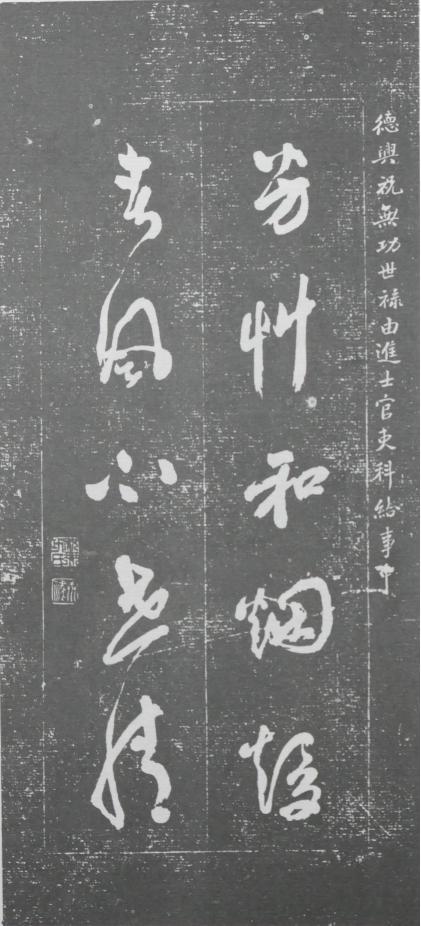 德興祝無功世祿由進士官吏科給事中
芳艸和烟煖
春風不世情